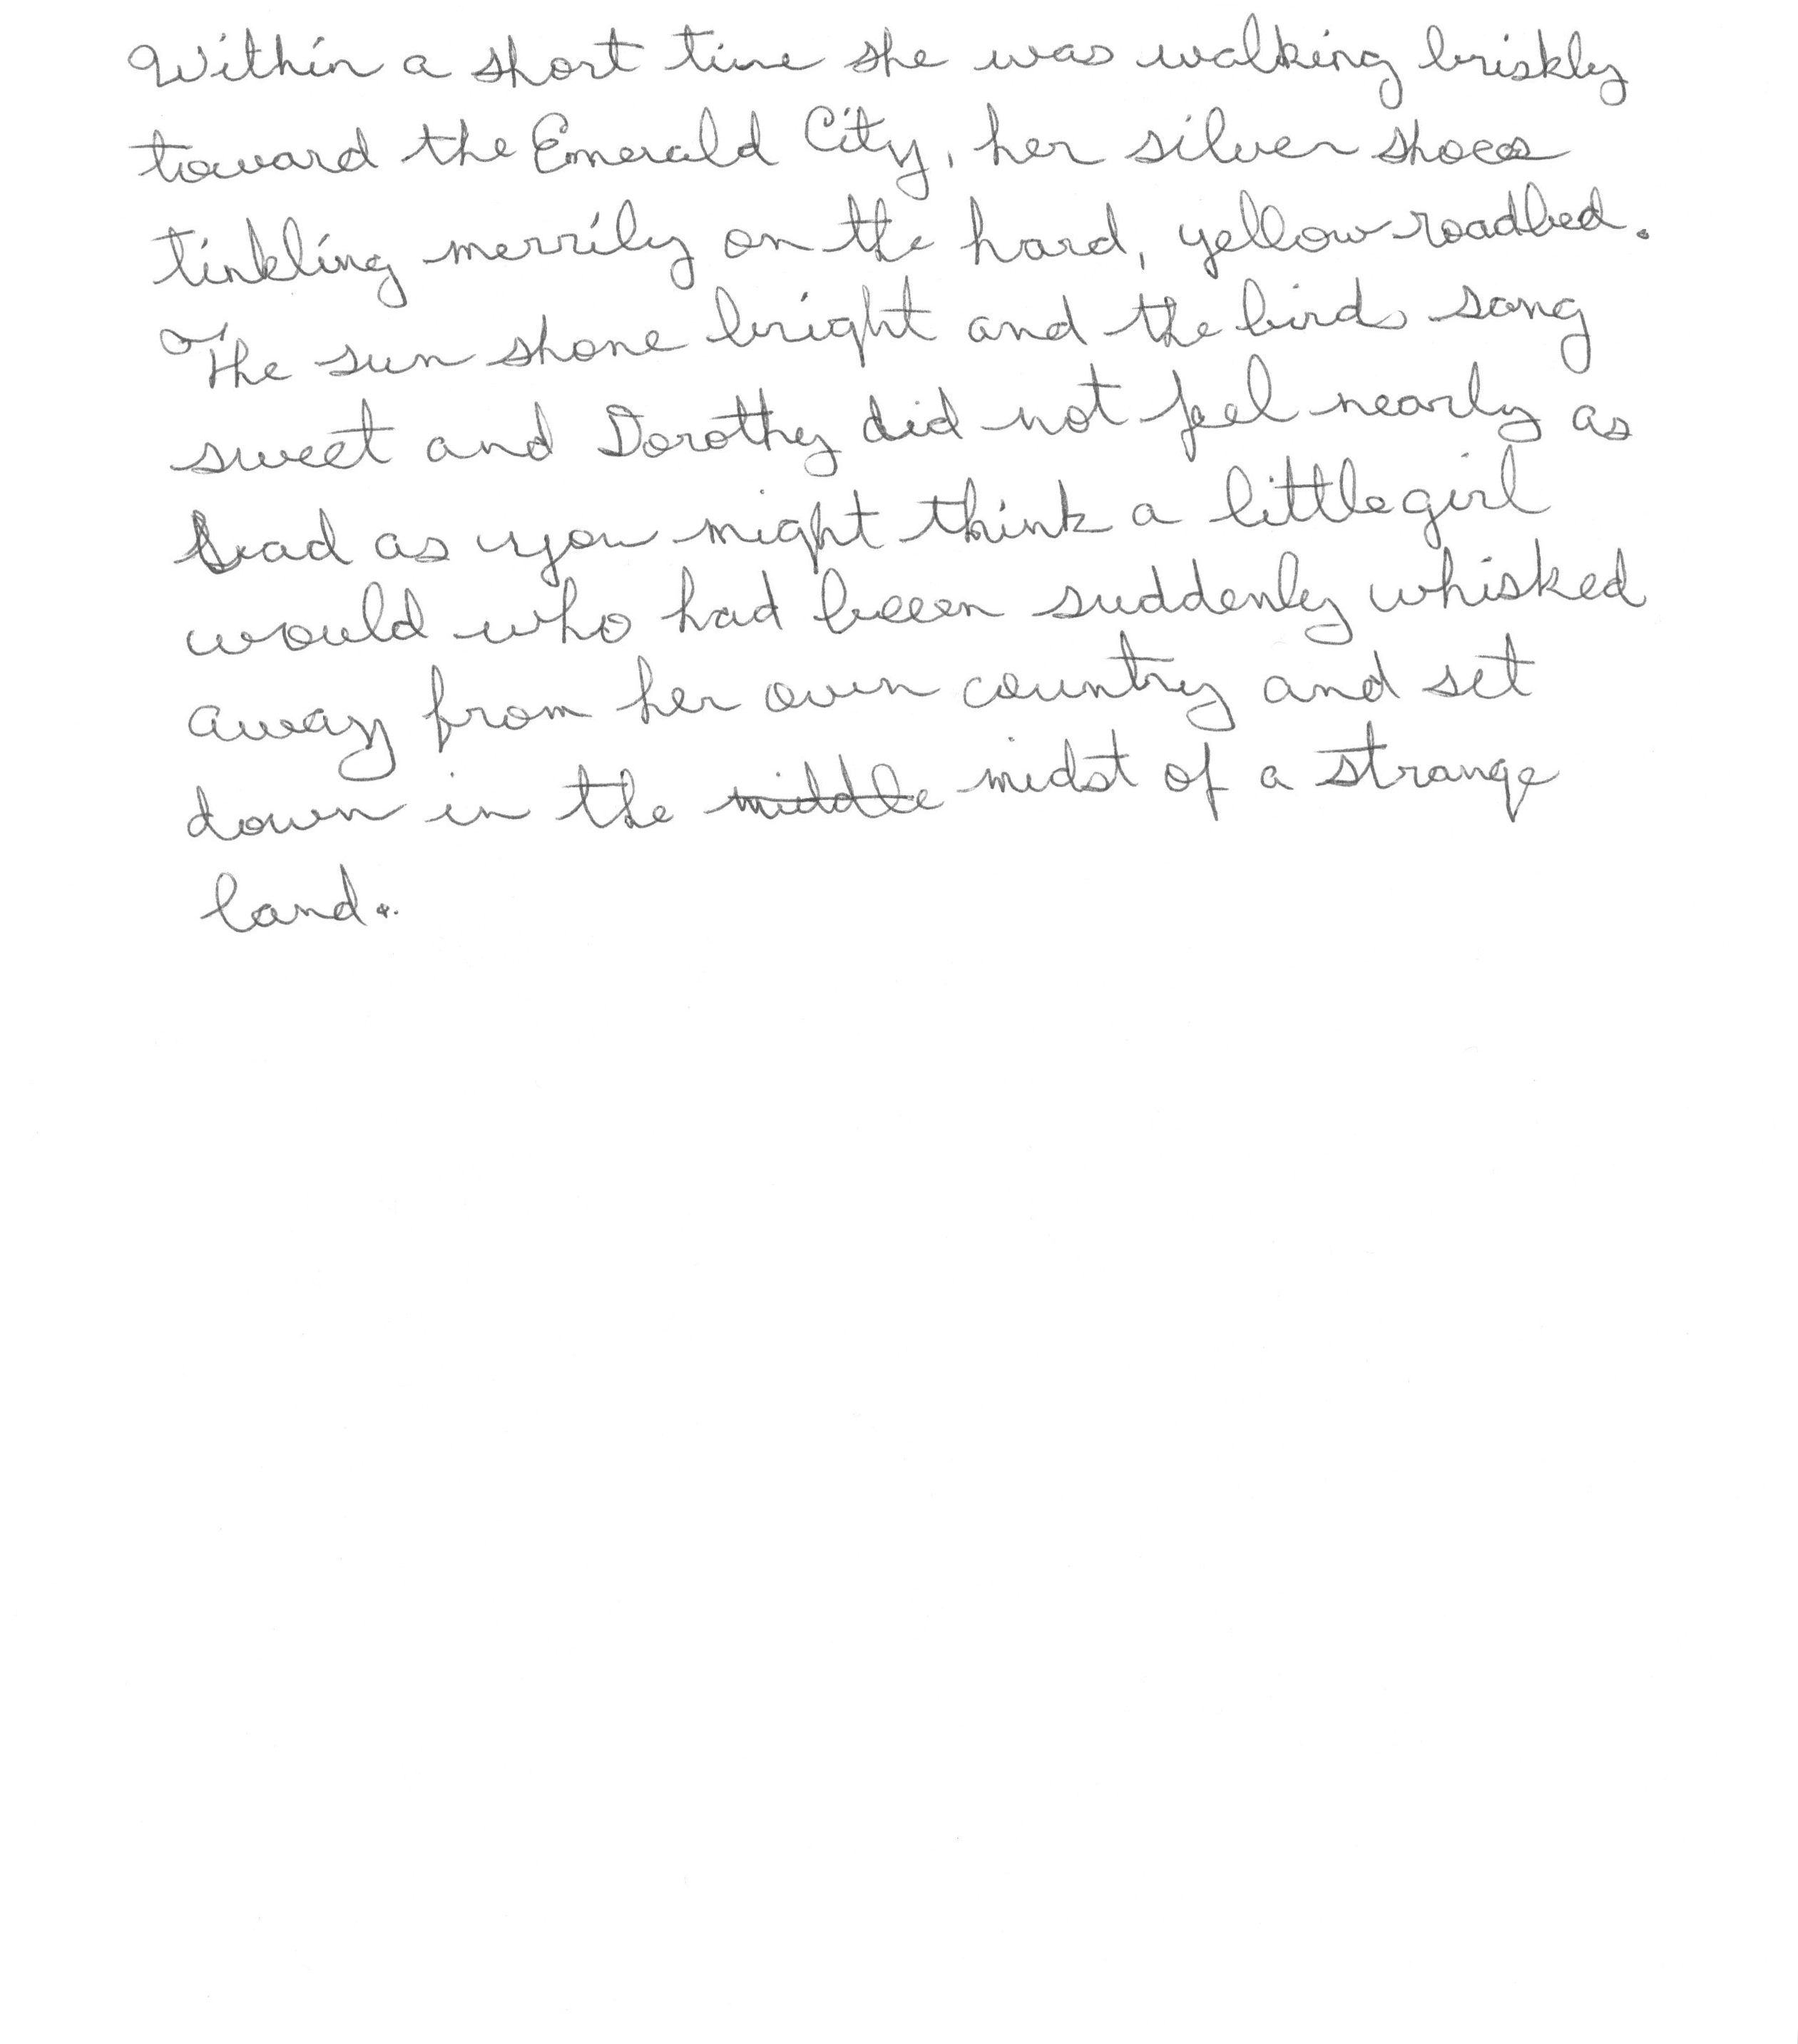 Within a short time she was walking briskly
toward the Emerald City, her silver shoes
tinkling merrily on the hard, yellow roadbed.
The sun shone bright and the birds sang
sweet and Dorothy did not feel nearly as
bad as you might think a little girl
would who had been suddenly whisked
away from her own country and set
down in the middle midst of a strange
land.